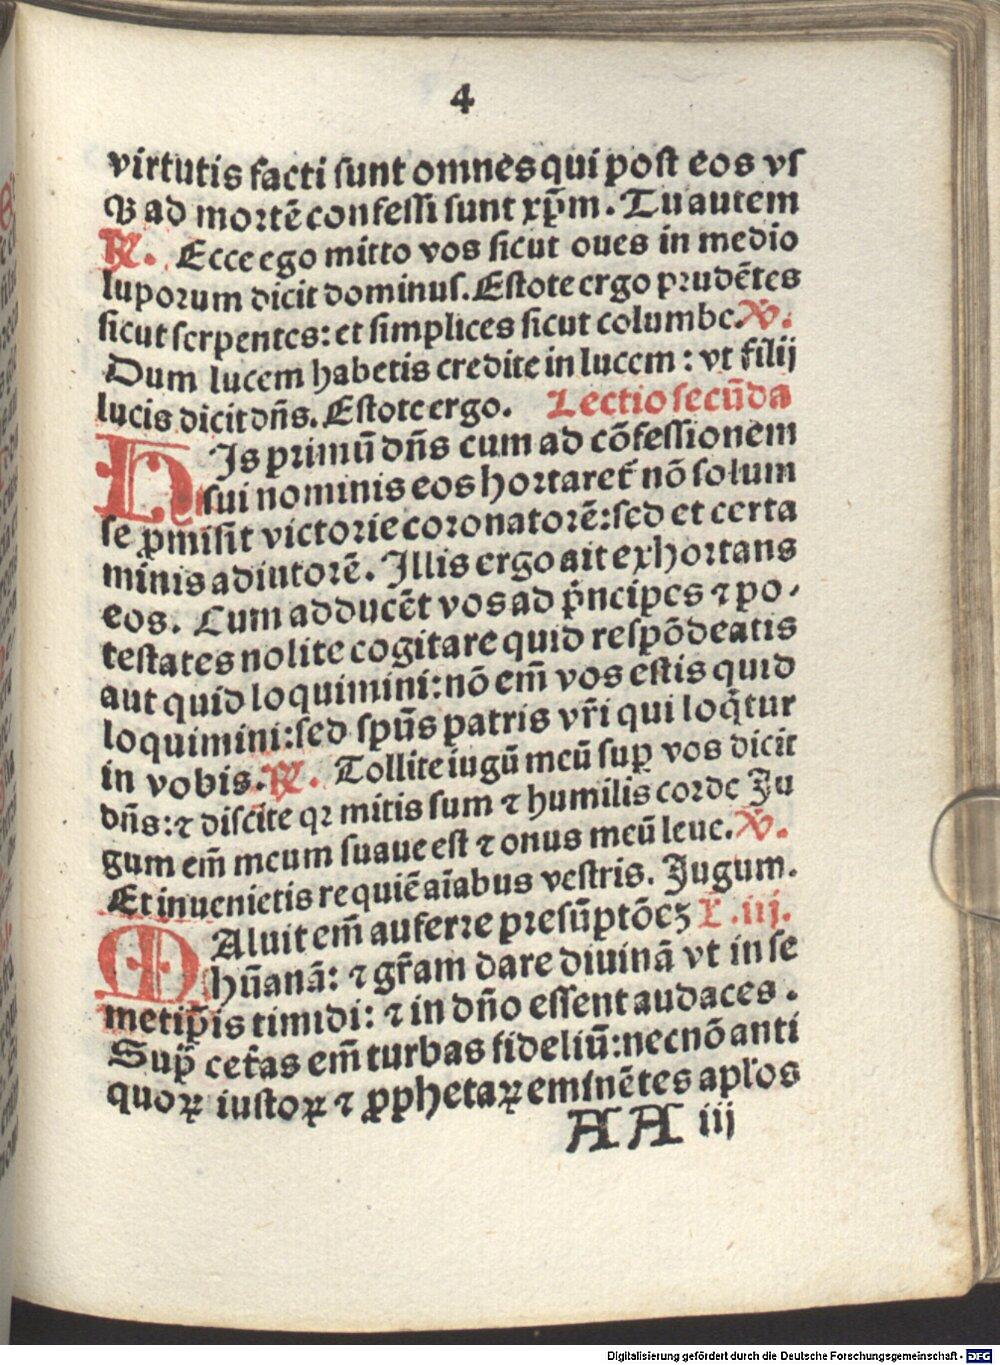 4
virtutis facti ſunt omnes qui poſt eos vſ
qꝫ ad mortē confeſſi ſunt xp̄m. Tu autem
℟. Ecce ego mitto vos ſicut oues in medio
luporum dicit dominus. Eſtote ergo prudētes
ſicut ſerpentes: et ſimplices ſicut columbe. ℣.
Dum lucem habetis credite in lucem: vt filij
lucis dicit dn̄s. Eſtote ergo. Lectio ſecūda
HJs primū dn̄s cum ad cōfeſſionem
ſui nominis eos hortaret̄ nō ſolum
ſe ꝓmiſit victorie coronatorē: ſed et certa
minis adiutorē. Jllis ergo ait exhortans
eos. Cum adducēt vos ad pͥncipes ⁊ po⸗
teſtates nolite cogitare quid reſpōdeatis
aut quid loquimini: nō em̄ vos eſtis quid
loquimini: ſed ſpūs patris vr̄i qui loqͥtur
in vobis. ℟. Tollite iugū meū ſuꝑ vos dicit
dn̄s: ⁊ diſcite qꝛ mitis ſum ⁊ humilis corde Ju
gum em̄ meum ſuaue eſt ⁊ onus meū leue. ℣.
Et inuenietis requiē aīabus veſtris. Jugum.
MAluit em̄ auferre preſūptōeꝫ L. iij.
hūanā: ⁊ gr̄am dare diuinā vt in ſe
metip̄is timidi: ⁊ in dn̄o eſſent audaces.
Suꝑ cet̄as em̄ turbas fideliū: necnō anti
quoꝝ iuſtoꝝ ⁊ ꝓphetaꝝ eminētes apl̓os
AA iij
Digitalisierung gefördert durch die Deutsche Forschungsgemeinschaft - DFG